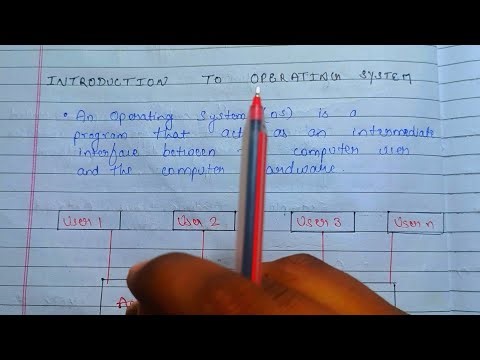 INTRODUCTION TO OPERATING SYSTEM
• An Operating System (OS) is a
program that act as an intermediate
interface between computer user
and the computer hardware.
User 1 User 2 User 3 User n